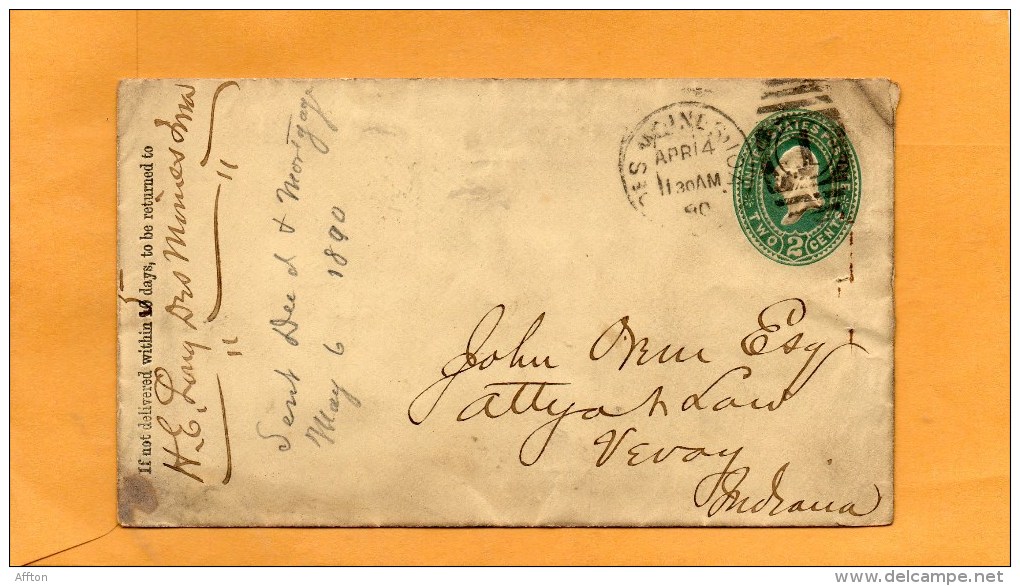 If not delivered within 10 days, to be returned to
5
H. E. Long Des Moines Iowa
Sent Deed & Mortgage
May 6 1890
DES MOINES IOWA
APR 14
11 30 AM
90
UNITED STATES
TWO 2 CENTS
John Esq
Atty at Law
Vevay
Indiana
Affton
http://www.delcampe.net